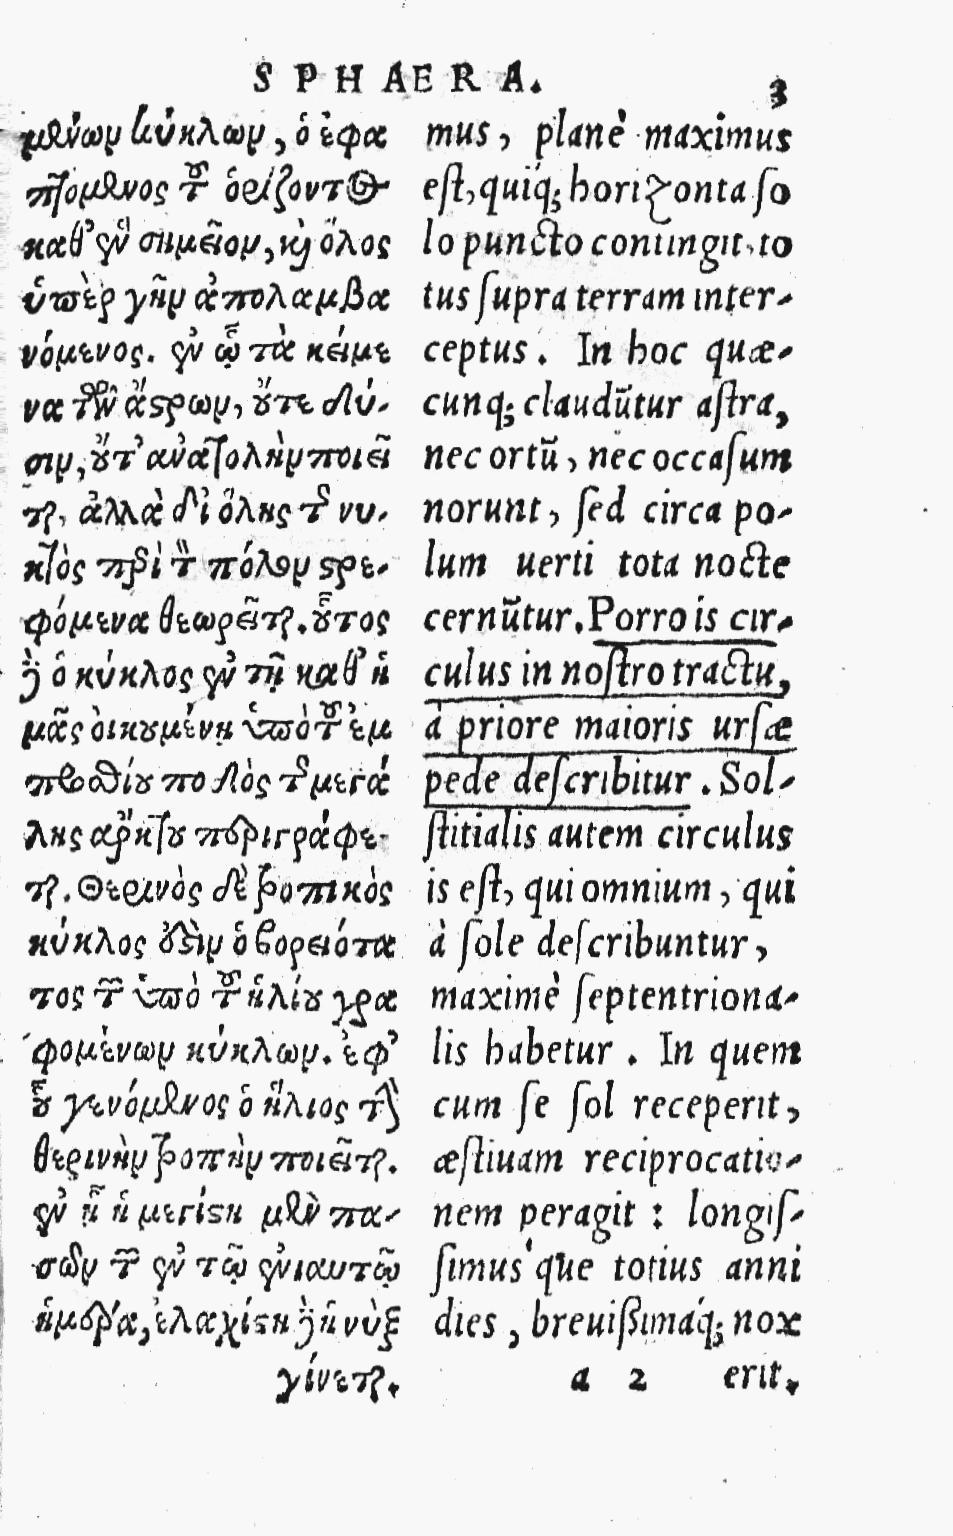 SPHAERA.
3
μένων κύκλων, ὁ ἐφα
πτόμενος τοῦ ὁρίζοντος
καθ' ἓν σημεῖον, καὶ ὅλος
ὑπὲρ γῆν ἀπολαμβα
νόμενος. ἐν ᾧ τὰ κείμε
να τῶν ἄστρων, οὔτε δύ-
σιν, οὔτ' ἀνατολὴν ποιεῖ
ται, ἀλλὰ δι' ὅλης τῆς νυ-
κτὸς περὶ τὸν πόλον στρε-
φόμενα θεωρεῖται. οὗτος
δὲ ὁ κύκλος ἐν τῇ καθ' ἡ
μᾶς οἰκουμένῃ ὑπὸ τοῦ ἐμ
προσθίου ποδὸς τῆς μεγά
λης ἄρκτου περιγράφε-
ται. Θερινὸς δὲ τροπικὸς
κύκλος ἐστὶν ὁ βορειότα
τος τῶν ὑπὸ τοῦ ἡλίου γρα
φομένων κύκλων. ἐφ'
οὗ γενόμενος ὁ ἥλιος τὴν
θερινὴν τροπὴν ποιεῖται.
ἐν ᾗ ἡ μεγίστη μὲν πα-
σῶν τῶν ἐν τῷ ἐνιαυτῷ
ἡμέρα, ἐλαχίστη δὲ ἡ νὺξ
γίνεται.
mus, planè maximus
est, quiq́; horizonta so
lo puncto contingit, to
tus supra terram inter-
ceptus. In hoc quæ-
cunq; claudũtur astra,
nec ortũ, nec occasum
norunt, sed circa po-
lum uerti tota nocte
cernũtur. Porro is cir-
culus in nostro tractu,
à priore maioris ursæ
pede describitur. Sol-
stitialis autem circulus
is est, qui omnium, qui
à sole describuntur,
maximè septentriona-
lis habetur. In quem
cum se sol receperit,
æstiuam reciprocatio-
nem peragit: longis-
simus'que totius anni
dies, breuißimaq́; nox
a 2 erit.